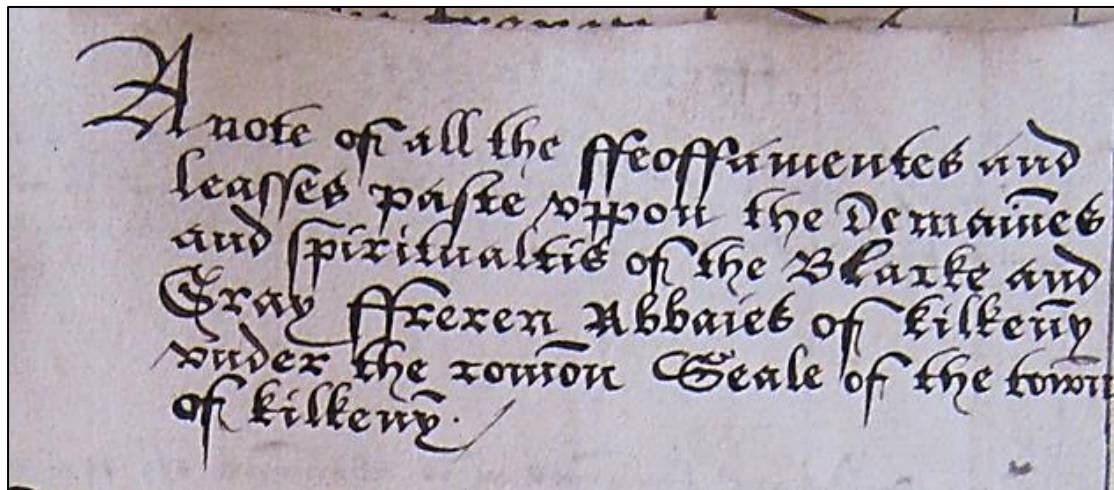 A note of all the ffeoffamentes and
leasses paste vppon the Demaines
and spiritualtis of the Blacke and
Gray ffreren Abbaies of kilkeny
vnder the comon Seale of the town
of kilkeny.